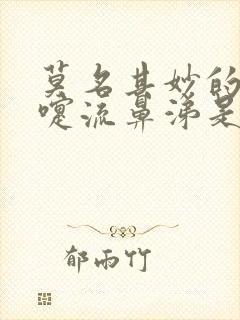 莫名其妙的
嚏流鼻涕是
郁雨竹